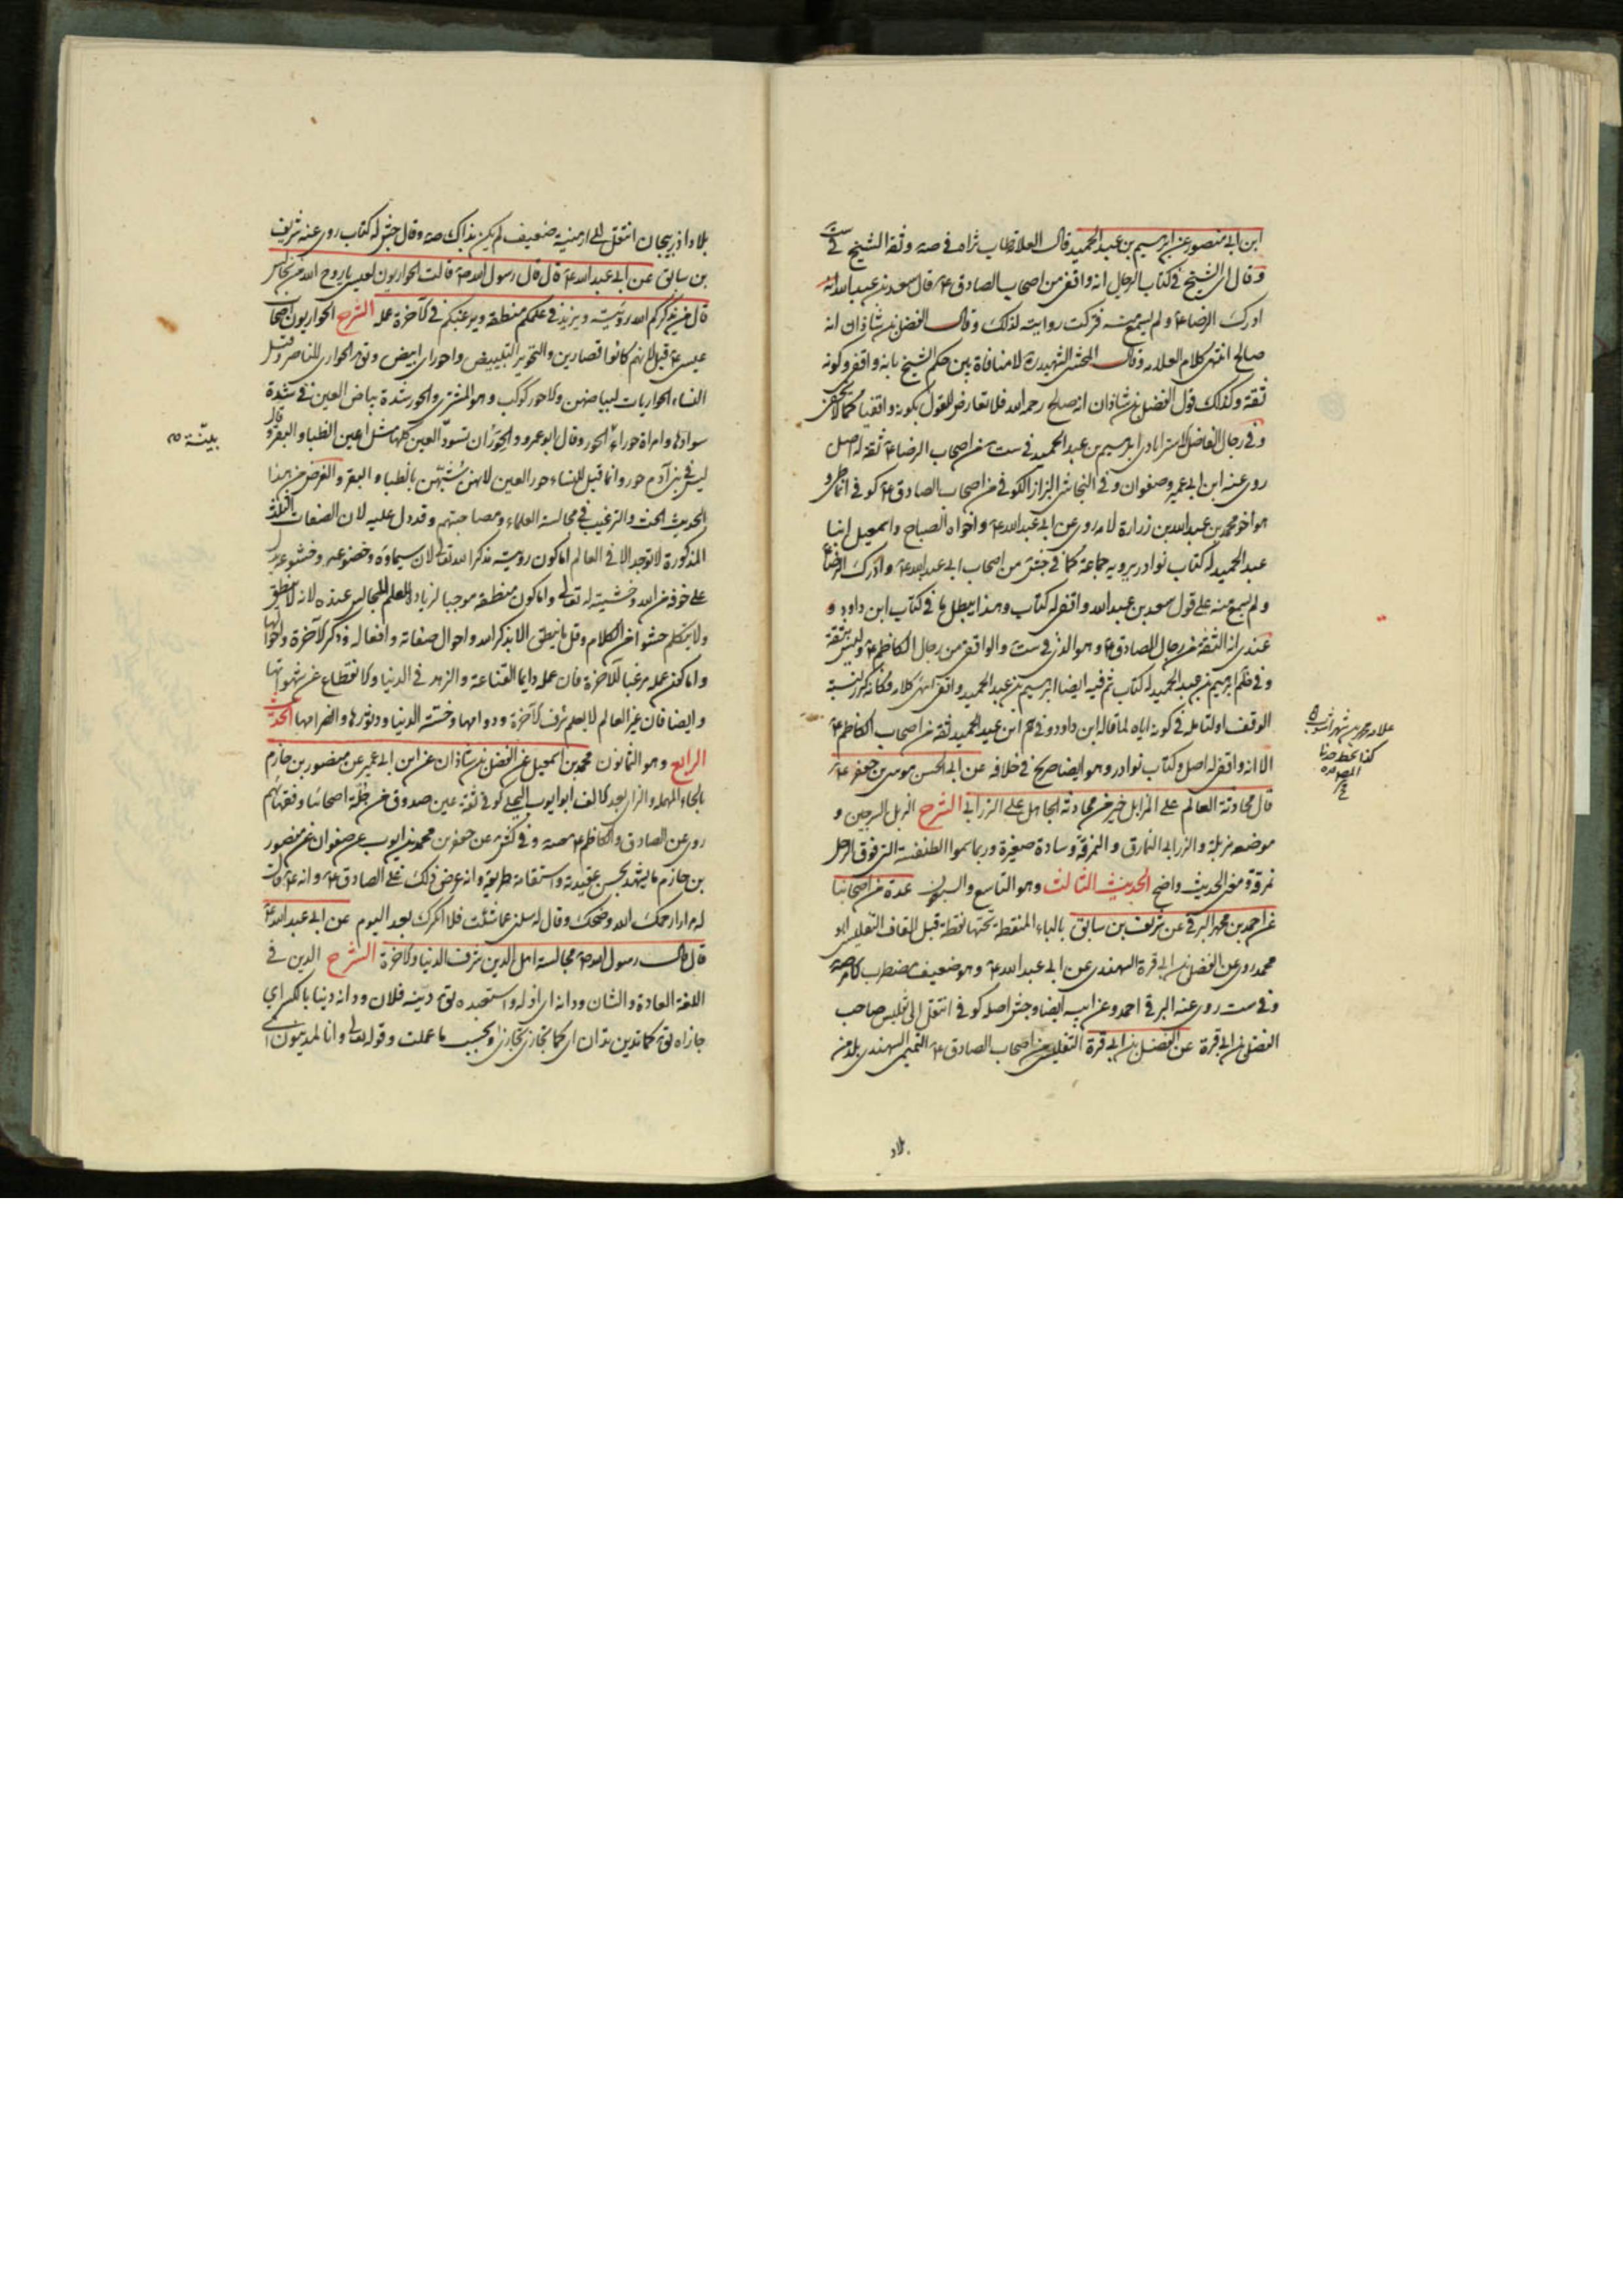 ابن ابى منصور عن ابرهيم بن عبد الحميد قال العلامة طاب ثراه فى صه وثقه الشيخ فى ست
وقال اى الشيخ فى كتاب الرجال انه واقفى من اصحاب الصادق ع قال سعد بن عبد الله انه
ادرك الرضا ع ولم يسمع منه فتركت روايته لذلك وقال الفضل بن شاذان انه
صالح انتهى كلام العلامه وقال المحشى الشهيد ره لا منافاة بين حكم الشيخ بانه واقفى وكونه
ثقه وكذلك قول الفضل بن شاذان انه صالح رحمه الله فلا تعارض للقول بكونه واقفيا كما لا يخفى
وفى رجال الفاضل الاسترابادى ابرهيم بن عبد الحميد فى ست من اصحاب الرضا ع ثقه له اصل
روى عنه ابن ابى عمير وصفوان وفى النجاشى البزاز الكوفى من اصحاب الصادق ع كوفى انماطى و
هو اخو محمد بن عبد الله بن زرارة لامه روى عن ابى عبد الله ع واخواه الصباح واسمعيل ابنا
عبد الحميد له كتاب نوادر يرويه جماعة كما فى جش من اصحاب ابى عبد الله ع وادرك الرضا ع
ولم يسمع منه على قول سعد بن عبد الله واقفى له كتاب وهذا يبطل ما فى كتاب ابن داود و
عندى ان الثقة من رجال الصادق ع وهو الذى فى ست والواقفى من رجال الكاظم ع وليس بثقة
وفى ظم ابرهيم بن عبد الحميد له كتاب ثم فيه ايضا ابرهيم بن عبد الحميد واقفى انتهى كلامه فكانه كرر لنسبة
الوقف اولتامله فى كونه اياه لما قاله ابن داود وفى هم ابن عبد الحميد ثقه من اصحاب الكاظم ع
الا انه واقفى له اصل وكتاب نوادر وهو ايضا صريح فى خلافه عن ابى الحسن موسى بن جعفر ع
قال محادثة العالم على المزابل خير من محادثة الجاهل على الزرابى الشرح الزبل السرجين و
موضعه مزبلة والزرابى النمارق والنمرقة وسادة صغيرة وربما سموا الطنفسة التى فوق الرحل
نمرقة ومعنى الحديث واضح الحديث الثالث وهو التاسع والسبعون عدة من اصحابنا
عن احمد بن محمد البرقى عن شريف بن سابق بالباء المنقطة تحتها نقطة قبل القاف التفليسى ابو
محمد روى عن الفضل بن ابى قرة السهندى عن ابى عبد الله ع وهو ضعيف مضطرب الامر صه
وفى ست روى عنه البرقى احمد وعن ابيه ايضا وجش اصله كوفى انتقل الى تفليس صاحب
الفضل بن ابى قرة عن الفضل بن ابى قرة التفليسى من اصحاب الصادق ع التميمى السهندى بلد من
بلاد
كذا بخط
بلاد اذربيجان انتقل الى ارمنية ضعيف لم يكن بذاك صه وقال جش له كتاب روى عنه شريف
بن سابق عن ابى عبد الله ع قال قال رسول الله ص قالت الحواريون لعيسى يا روح الله من نجالس
قال من يذكركم الله رؤيته ويزيد فى علمكم منطقه ويرغبكم فى الآخرة عمله الشرح الحواريون اصحاب
عيسى ع قيل لانهم كانوا قصارين والتحوير التبييض واحور اى ابيض وقيل الحوارى الناصر وقيل
النساء الحواريات لبياضهن والاحور كوكب وهو المشترى والحور شدة بياض العين فى شدة
سوادها وامراة حوراء الحور وقال ابو عمرو والحور ان تسود العين كلها مثل اعين الظباء والبقر قال و
ليس فى بنى آدم حور وانما قيل للنساء حور العين لانهن شبهن بالظباء والبقر والغرض من هذا
الحديث الحث والترغيب فى مجالسة العلماء ومصاحبتهم وقد دل عليه لان الصفات الثلثة
المذكورة لا توجد الا فى العالم اما كون رؤيته مذكرا لله تعالى لان سيماؤه وخضوعه وخشوعه يدل
على خوفه من الله وخشيته له تعالى واما كون منطقه موجبا لزيادة العلم للمجالس عنده لانه لا ينطق
ولا يتكلم حشوا من الكلام وقل ما ينطق الا بذكر الله واحوال صفاته وافعاله وذكر الآخرة واحوالها
واما كون عمله مرغبا للآخرة فان عمله دايما القناعة والزهد فى الدنيا والانقطاع عن شهواتها
وايضا فان غير العالم لا يعلم شرف الآخرة ودوامها وخسة الدنيا ودثورها وانصرامها الحديث
الرابع وهو الثمانون محمد بن اسمعيل عن الفضل بن شاذان عن ابن ابى عمير عن منصور بن حازم
بالحاء المهمله والزاى بعد الالف ابو ايوب البجلى كوفى ثقه عين صدوق من جلة اصحابنا وفقهائهم
روى عن الصادق والكاظم ع صه وفى كش عن جعفر بن محمد بن ايوب عن صفوان عن منصور
بن حازم ما يشهد بحسن عقيدته واستقامة طريقته وانه عرض ذلك على الصادق ع وانه ع قال
له مرارا رحمك الله وضحك وقال له سلنى عما شئت فلا انكرك بعد اليوم عن ابى عبد الله ع
قال قال رسول الله ص مجالسة اهل الدين شرف الدنيا والآخرة الشرح الدين فى
اللغة العادة والشان ودانه اى اذله واستعبده يق دينه فلان ودانه دينا بالكسر اى
جازاه يق كما تدين تدان اى كما تجازى تجازى وبحسب ما عملت وقوله تعالى وانا لمدينون اى